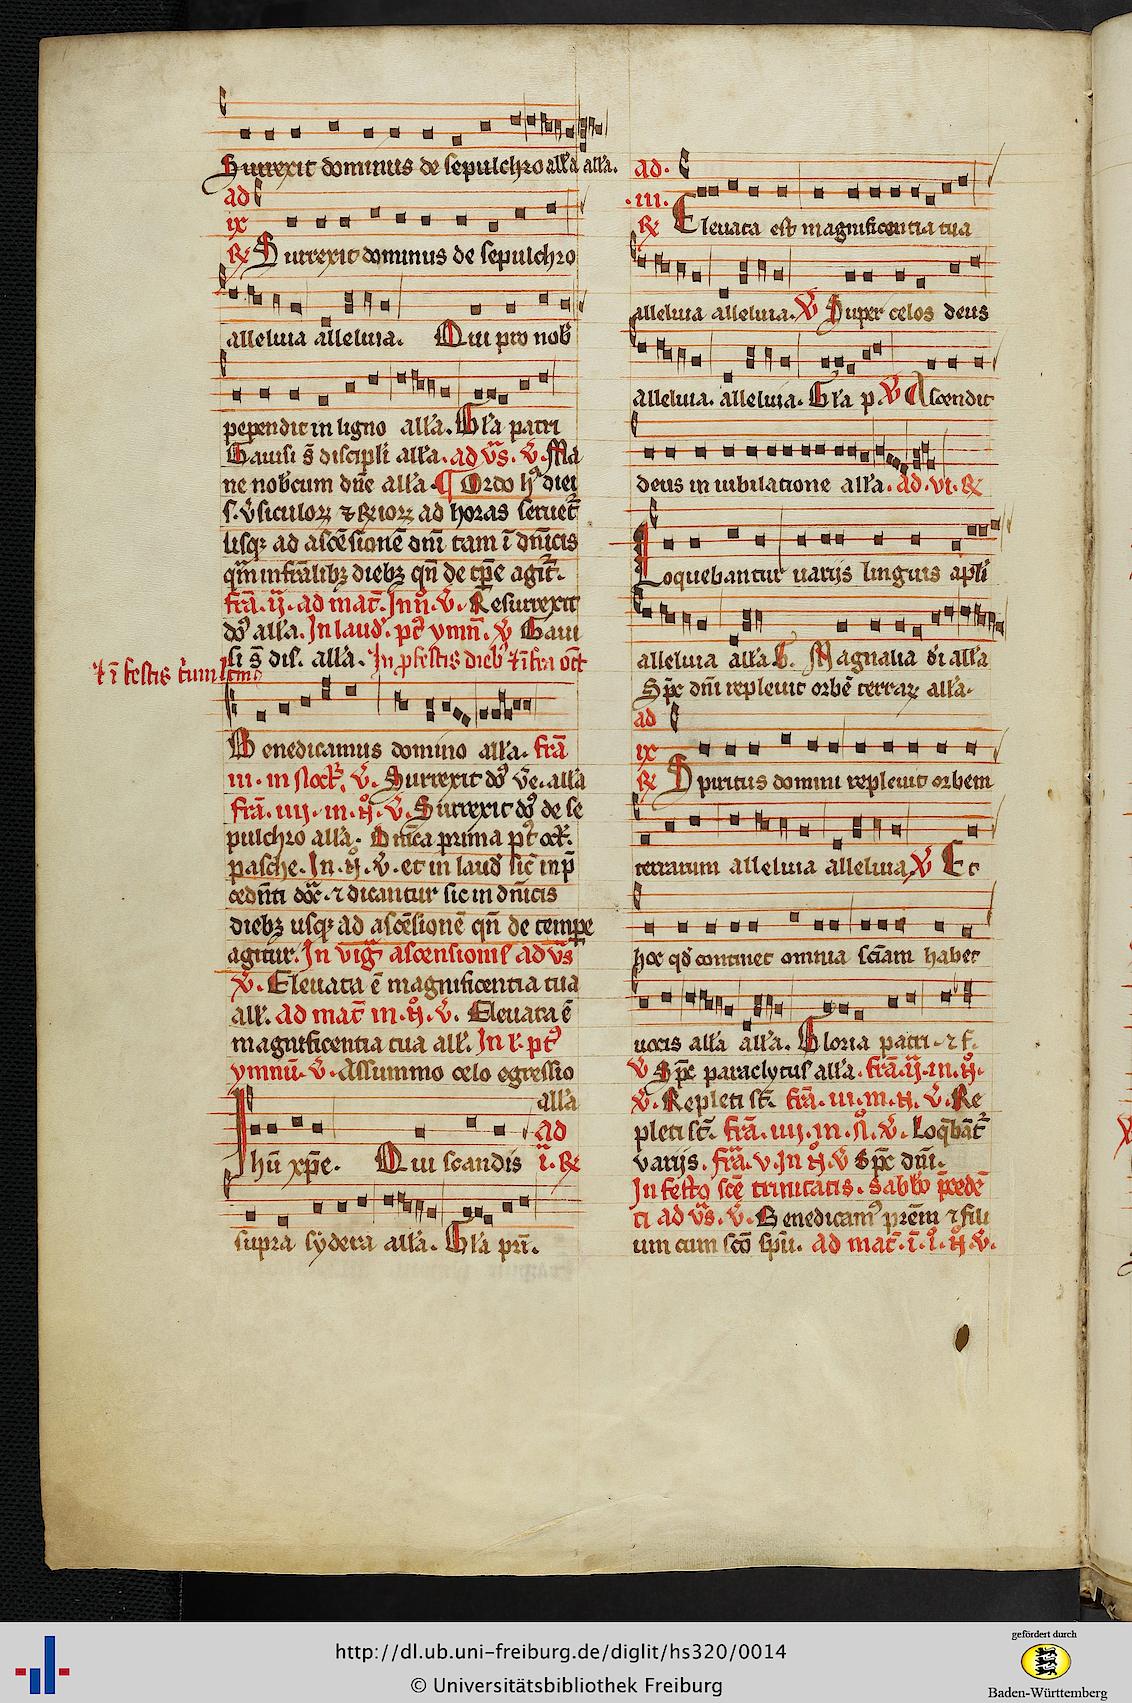 Surrexit dominus de sepulchro all'a all'a.
ad
ix
R Surrexit dominus de sepulchro
alleluia alleluia. Qui pro nob'
pependit in ligno all'a. Gl'a patri
Gauisi s̄ discipli all'a. ad v̄s. v̄. Ma
ne nob'cum dn̄e all'a. ¶ Ordo hꝰ diei
s. v̄siculoꝝ ⁊ R̄ioꝝ ad horas seruet᷑
usqꝫ ad ascēsionē dn̄i tam ī dn̄icis
qm̄ infr̄alibꝫ diebꝫ qn̄ de tp̄e agit᷑.
fr̄a. ij. ad mat̄. In n̄. v̄. Resurrexit
do᷒ all'a. In laud'. pt᷒ ymn̄. v̄ Gaui
si s̄ dis. all'a. In ꝓfestis dieb'
⁊ ī festis trium
Benedicamus domino all'a. fr̄a
iii. in noct᷑. v̄. Surrexit do᷒ ve. all'a
fr̄a. iiij. in. n̊. v̄. Surrexit do᷒ de se
pulchro all'a. Dn̄ica prima pt᷒ oct᷑.
pasche. In. n̊. v̄. et in laud' sic̄ in p̄
cedn̄ti ⁊ dicantur sic in dn̄icis
diebꝫ usqꝫ ad ascēsionē qn̄ de tempe
agitur. In vigl̄'a ascensionis ad v̄s
v̄. Eleuata ē magnificentia tua
all'. ad mat̄ in. n̊. v̄. Eleuata ē
magnificentia tua all'. In l'. pt᷒
ymnū. v̄. Assummo celo egressio
all'a
ad
Ihū xp̄e. Qui scandis i. R
supra sydera all'a. Gl'a pri.
ad.
.iii.
R Eleuata est magnificentia tua
alleluia alleluia. v̄ Super celos deus
alleluia. alleluia. Gl'a p. v̄ Ascendit
deus in iubilatione all'a. ad. vi. R
Loquebantur varijs linguis ap̄li
alleluia all'a. G. Magnalia d'i all'a
Sp̄c dn̄i repleuit orbē terraꝝ all'a.
ad
ix
R Spiritus domini repleuit orbem
terrarum alleluia alleluia v̄ Et
hoc qd̄ continet omnia sc̄iam habet
uocis all'a all'a. Gloria patri. ⁊ f.
v̄ Sp̄c paraclytus all'a. fr̄a. ij. in. n̊.
v̄. Repleti st̄. fr̄a. iii. in. n̊. v̄. Re
pleti st̄. fr̄a. iiij. in. n̊. v̄. Loqb̄āt᷑
varijs. fr̄a. v. In n̊. v̄ Sp̄c dn̄i.
In festo sc̄e trinitatis. sabb'o p̄cedē
ti ad v̄s. v̄. Benedicam᷒ pr̄em ⁊ fili
um cum sc̄o sp̄u. ad mat̄. i. i̊. n̊. v̄.
http://dl.ub.uni-freiburg.de/diglit/hs320/0014
© Universitätsbibliothek Freiburg
gefördert durch
Baden-Württemberg